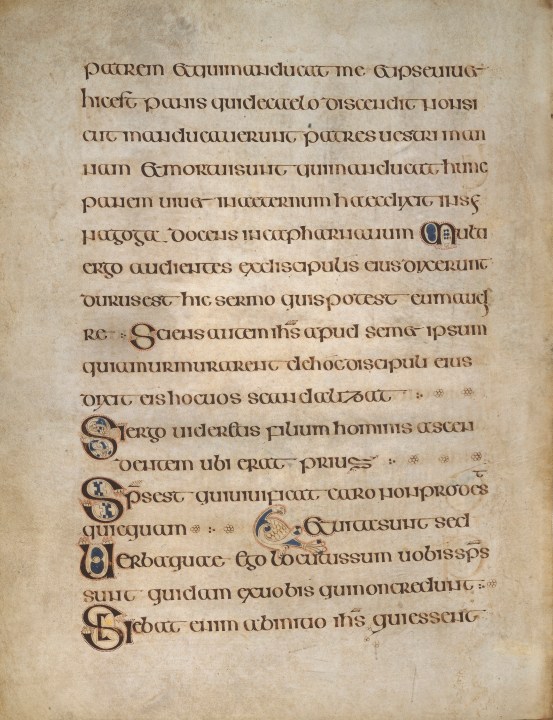 patrem & qui manducat me & ipse uiu&
hic est panis qui de caelo discendit non si
cut manducauerunt patres uestri man
nam & mortui sunt qui manducat hunc
panem uiu& in aeternum haec dixit in sy
nagoga docens in capharnaum Multi
ergo audientes ex discipulis eius dixerunt
durus est hic sermo quis potest eum audi
re Sciens autem ihs apud sem& ipsum
quia murmurarent de hoc discipuli eius
dixit eis hoc uos scandalizat
Si ergo uideritis filium hominis ascen
dentem ubi erat prius
Sps est qui uiuificat caro non prodest
quicquam
Uerba quae ego locutus sum uobis sps
& uita sunt sed
sunt quidam ex uobis qui non credunt
Sciebat enim ab initio ihs qui essent